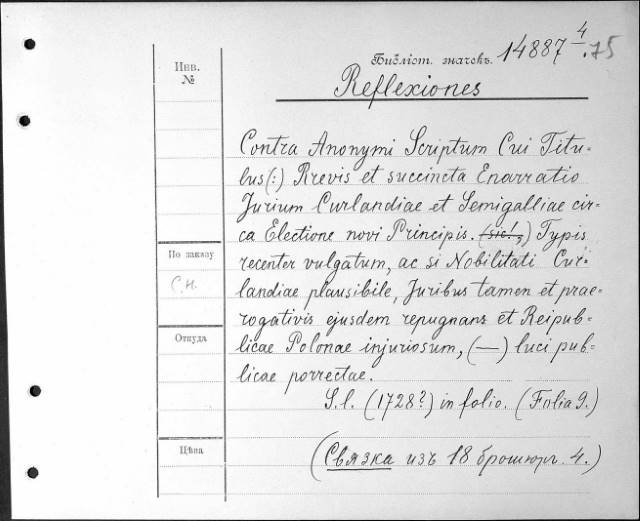 Библіот. значекъ. 14887 4/.75
Инв.
№
Reflexiones
Contra Anonymi Scriptum Cui Titu=
lus(:) Brevis et succincta Enarratio
Jurium Curlandiae et Semigalliae cir=
ca Electione novi Principis. (sic!,) Typis
recenter vulgatum, ac si Nobilitati Cur=
landiae plausibile, Juribus tamen et prae=
rogativis ejusdem repugnans et Reipub=
licae Polonae injuriosum, (—) luci pub=
licae porrectae.
S.l. (1728?) in folio. (Folia 9.)
(Связка изъ 18 брошюръ. 4.)
По заказу
С.н.
Откуда
Цѣна